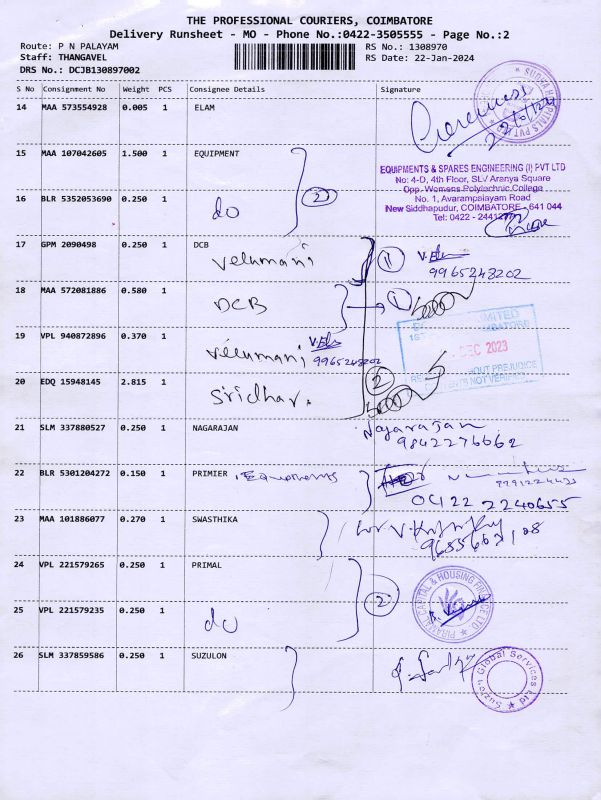 THE PROFESSIONAL COURIERS, COIMBATORE
Delivery Runsheet - MO - Phone No.:0422-3505555 - Page No.:2
Route: P N PALAYAM
RS No.: 1308970
Staff: THANGAVEL
RS Date: 22-Jan-2024
DRS No.: DCJB130897002
S No Consignment No Weight PCS Consignee Details Signature
14 MAA 573554928 0.005 1 ELAM
15 MAA 107042605 1.500 1 EQUIPMENT
EQUIPMENTS & SPARES ENGINEERING (I) PVT LTD
No: 4-D, 4th Floor, SLV Aranya Square
Opp. Womens Polytechnic College
No. 1, Avarampalayam Road
New Siddhapudur, COIMBATORE - 641 044
Tel: 0422 -
16 BLR 5352053690 0.250 1 do 2
17 GPM 2090498 0.250 1 DCB
velumani 11 9965248202
18 MAA 572081886 0.580 1 DCB 1
19 VPL 940872896 0.370 1 velumani 9965248202
DEC 2023
20 EDQ 15948145 2.815 1 Sridhar. 2
21 SLM 337880527 0.250 1 NAGARAJAN Nagarajan
9842276662
22 BLR 5301204272 0.150 1 PRIMIER
0422 2240655
23 MAA 101886077 0.270 1 SWASTHIKA
24 VPL 221579265 0.250 1 PRIMAL
PIRAMAL CAPITAL & HOUSING FINANCE LTD.
25 VPL 221579235 0.250 1 do 2
26 SLM 337859586 0.250 1 SUZULON
Suzlon Global Services Ltd